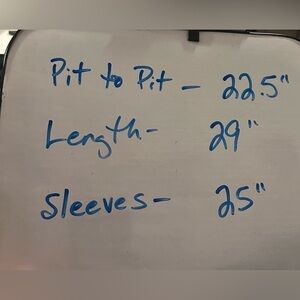 Pit to Pit - 22.5"
Length- 29"
Sleeves- 25"